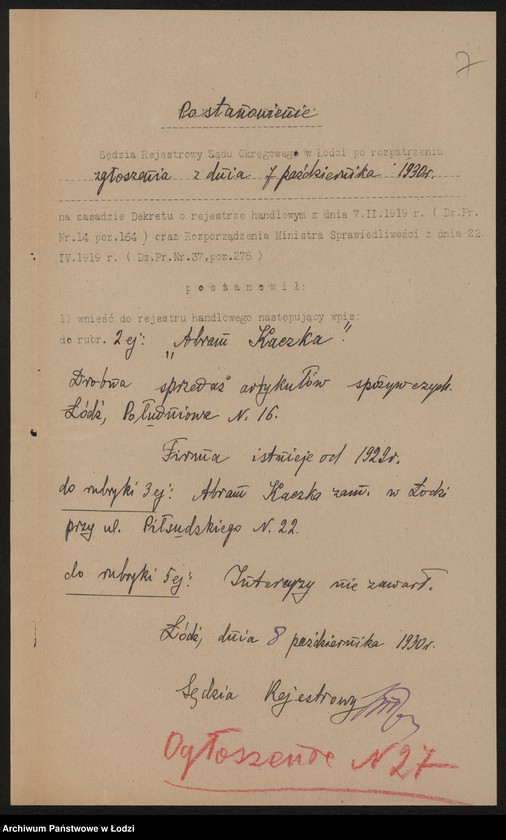 7
Postanowienie
Sędzia Rejestrowy Sądu Okręgowego w Łodzi po rozpatrzeniu
zgłoszenia z dnia 7 października 1930r.
na zasadzie Dekretu o rejestrze handlowym z dnia 7.II.1919 r. ( Dz.Pr.
Nr.14 poz.164 ) oraz Rozporządzenia Ministra Sprawiedliwości z dnia 22
IV.1919 r. ( Dz.Pr.Nr.37,poz.278 )
p o s t a n o w i ł:
1) wnieść do rejestru handlowego następujący wpis:
do rubr. 2ej: „Abram Kaczka".
Drobna sprzedaż artykułów spożywczych.
Łódź, Południowa N. 16.
Firma istnieje od 1929r.
do rubryki 3ej: Abram Kaczka zam. w Łodzi
przy ul. Piłsudskiego N. 22.
do rubryki 5ej: Intercyzy nie zawarł.
Łódź, dnia 8 października 1930r.
Sędzia Rejestrowy
Ogłoszenie N 27
Archiwum Państwowe w Łodzi